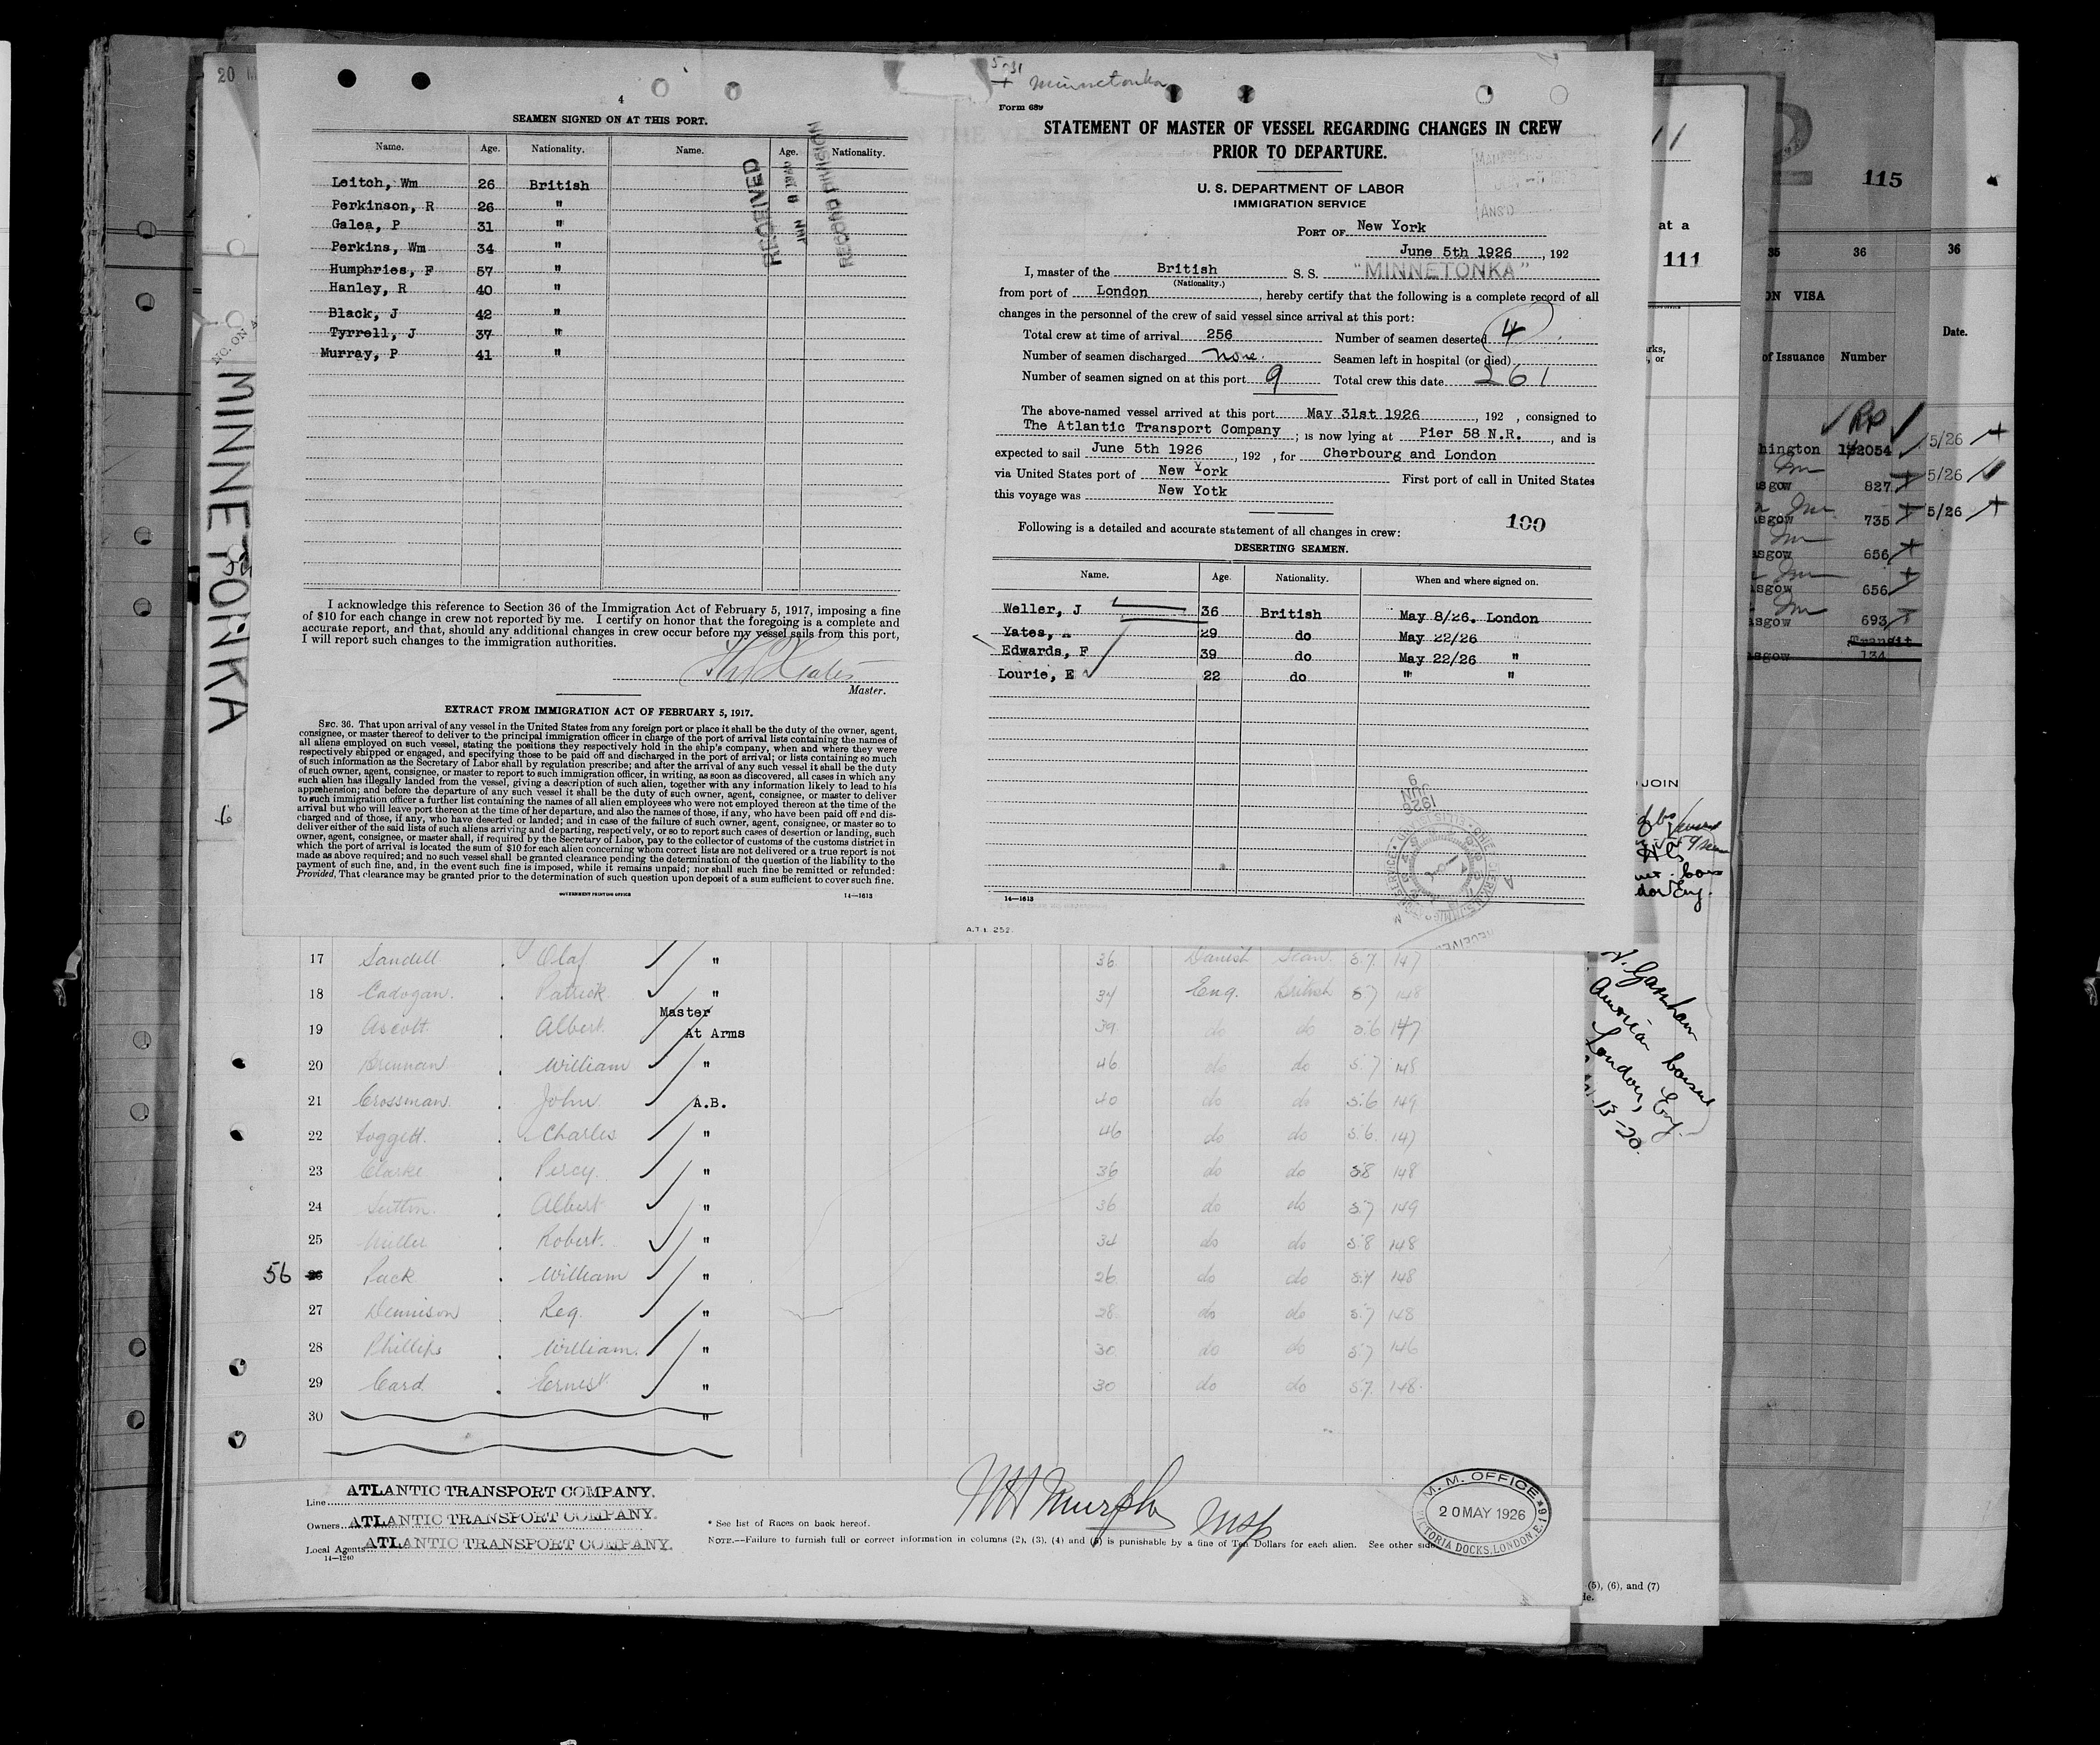 20 M
4
SEAMEN SIGNED ON AT THIS PORT.
Name. Age. Nationality. Name. Age. Nationality.
Leitch, Wm 26 British
Perkinson, R 26 "
Galea, P 31 "
Perkins, Wm 34 "
Humphries, F 57 "
Hanley, R 40 "
Black, J 42 "
Tyrrell, J 37 "
Murray, P 41 "
RECEIVED
RECORD DIVISION
I acknowledge this reference to Section 36 of the Immigration Act of February 5, 1917, imposing a fine
of $10 for each change in crew not reported by me. I certify on honor that the foregoing is a complete and
accurate report, and that, should any additional changes in crew occur before my vessel sails from this port,
I will report such changes to the immigration authorities.
Master.
EXTRACT FROM IMMIGRATION ACT OF FEBRUARY 5, 1917.
SEC. 36. That upon arrival of any vessel in the United States from any foreign port or place it shall be the duty of the owner, agent,
consignee, or master thereof to deliver to the principal immigration officer in charge of the port of arrival lists containing the names of
all aliens employed on such vessel, stating the positions they respectively hold in the ship's company, when and where they were
respectively shipped or engaged, and specifying those to be paid off and discharged in the port of arrival; or lists containing so much
of such information as the Secretary of Labor shall by regulation prescribe; and after the arrival of any such vessel it shall be the duty
of such owner, agent, consignee, or master to report to such immigration officer, in writing, as soon as discovered, all cases in which any
such alien has illegally landed from the vessel, giving a description of such alien, together with any information likely to lead to his
apprehension; and before the departure of any such vessel it shall be the duty of such owner, agent, consignee, or master to deliver
to such immigration officer a further list containing the names of all alien employees who were not employed thereon at the time of the
arrival but who will leave port thereon at the time of her departure, and also the names of those, if any, who have been paid off and dis-
charged and of those, if any, who have deserted or landed; and in case of the failure of such owner, agent, consignee, or master so to
deliver either of the said lists of such aliens arriving and departing, respectively, or so to report such cases of desertion or landing, such
owner, agent, consignee, or master shall, if required by the Secretary of Labor, pay to the collector of customs of the customs district in
which the port of arrival is located the sum of $10 for each alien concerning whom correct lists are not delivered or a true report is not
made as above required; and no such vessel shall be granted clearance pending the determination of the question of the liability to the
payment of such fine, and, in the event such fine is imposed, while it remains unpaid; nor shall such fine be remitted or refunded:
Provided, That clearance may be granted prior to the determination of such question upon deposit of a sum sufficient to cover such fine.
GOVERNMENT PRINTING OFFICE 14—1613
MINNETONKA
5-31
Minnetonka
Form 689
STATEMENT OF MASTER OF VESSEL REGARDING CHANGES IN CREW
PRIOR TO DEPARTURE.
U. S. DEPARTMENT OF LABOR
IMMIGRATION SERVICE
ANS'D
PORT OF New York
June 5th 1926, 192
I, master of the British S. S. "MINNETONKA"
(Nationality.)
from port of London, hereby certify that the following is a complete record of all
changes in the personnel of the crew of said vessel since arrival at this port:
Total crew at time of arrival 256 Number of seamen deserted 4
Number of seamen discharged none. Seamen left in hospital (or died)
Number of seamen signed on at this port 9 Total crew this date 261
The above-named vessel arrived at this port May 31st 1926, 192 , consigned to
The Atlantic Transport Company; is now lying at Pier 58 N.R., and is
expected to sail June 5th 1926, 192 , for Cherbourg and London
via United States port of New York First port of call in United States
this voyage was New Yotk
Following is a detailed and accurate statement of all changes in crew: 100
DESERTING SEAMEN.
Name. Age. Nationality. When and where signed on.
Weller, J 36 British May 8/26. London
Yates, 29 do May 22/26 "
Edwards, F 39 do May 22/26 "
Lourie, E 22 do " "
9
JUN
1926
14—1613
A.T.L. 252.
17 Sandell Olaf " 36 Danish Scan. 5.7 147
18 Cadogan. Patrick " 34 Eng. British 5.7 148
19 Ascott. Albert. Master At Arms 39 do do 5.6 147
20 Brennan William " 46 do do 5.7 145
21 Crossman. John A.B. 40 do do 5.6 149
22 Charles " 46 do do 5.6. 147
23 Clarke Percy. " 36 do do 5.8 148
24 Sutton. Albert " 36 do do 5.7 149
25 Miller Robert. " 34 do do 5.8 148
56 26 Pack William " 26 do do 5.7 148
27 Dennison Reg. " 28 do do 5.7 148
28 Phillips William. " 30 do do 5.7 146
29 Card Ernest " 30 do do 5.7. 148.
30 "
Line ATLANTIC TRANSPORT COMPANY.
Owners ATLANTIC TRANSPORT COMPANY.
Local Agents ATLANTIC TRANSPORT COMPANY.
14—1240
* See list of Races on back hereof.
NOTE.—Failure to furnish full or correct information in columns (2), (3), (4) and (5) is punishable by a fine of Ten Dollars for each alien. See other side
M. M. OFFICE
20 MAY 1926
VICTORIA DOCKS, LONDON, E.16
at a
111
or
JOIN
American Consul
London, Eng.
13-20
(5), (6), and (7)
115
35 36 36
ON VISA
Date.
of Issuance Number
hington 192054 5/26
asgow 827 5/26
asgow 735 5/26
asgow 656
asgow 656
asgow 693
Transit
asgow 134